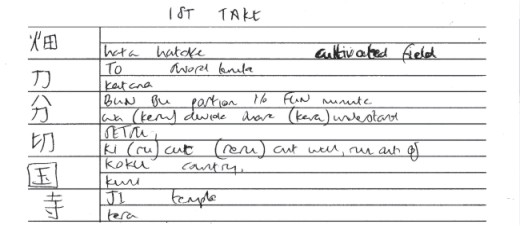 1ST TAKE
畑
hata hatake cultivated field
刀 TO sword knife
katana
分 BUN BU portion 1% FUN minute
wa (keru) divide share (karu) understand
切 SETSU,
ki (ru) cut (reru) cut well, run out of
国 KOKU country,
kuni
寺 JI temple
tera